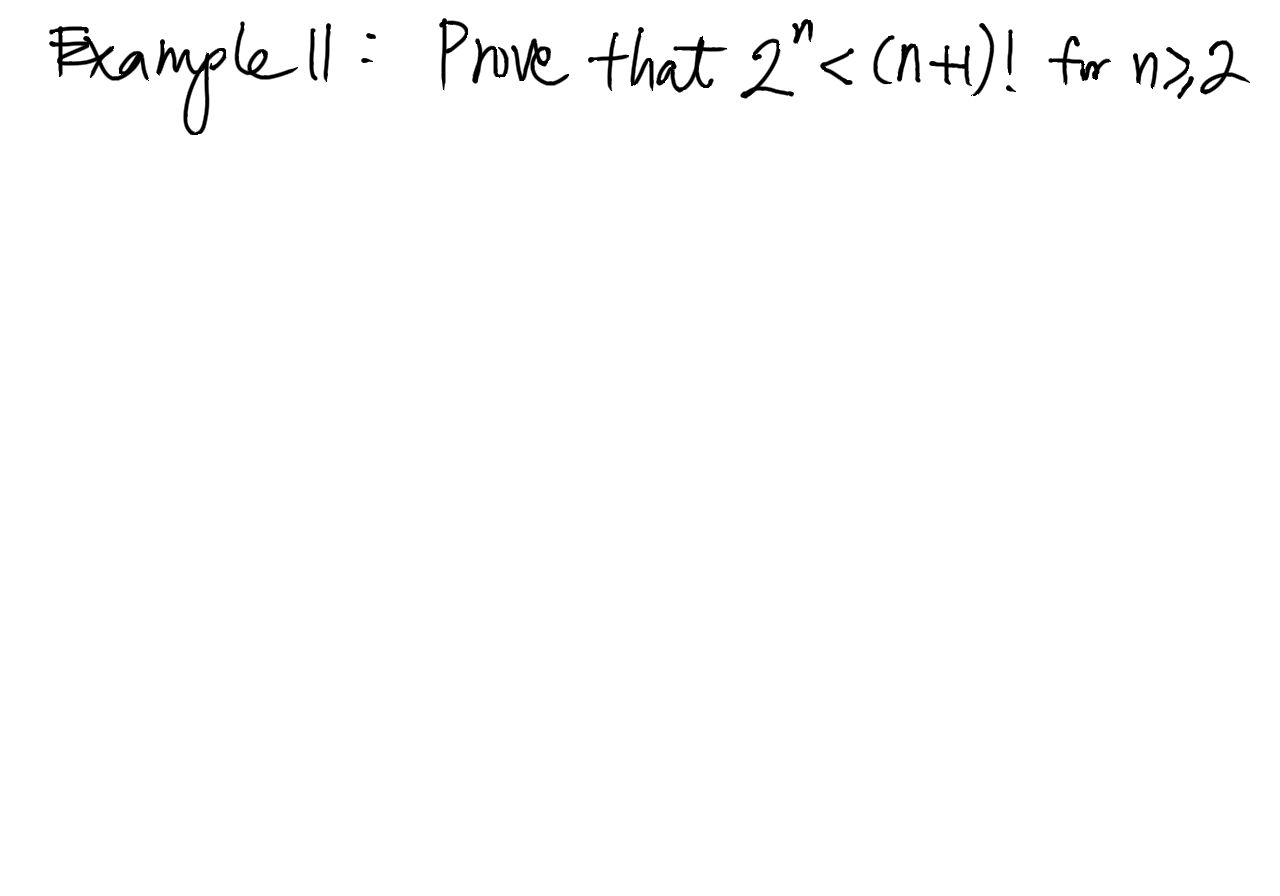 Example 11 : Prove that 2ⁿ < (n+1)! for n ⩾ 2